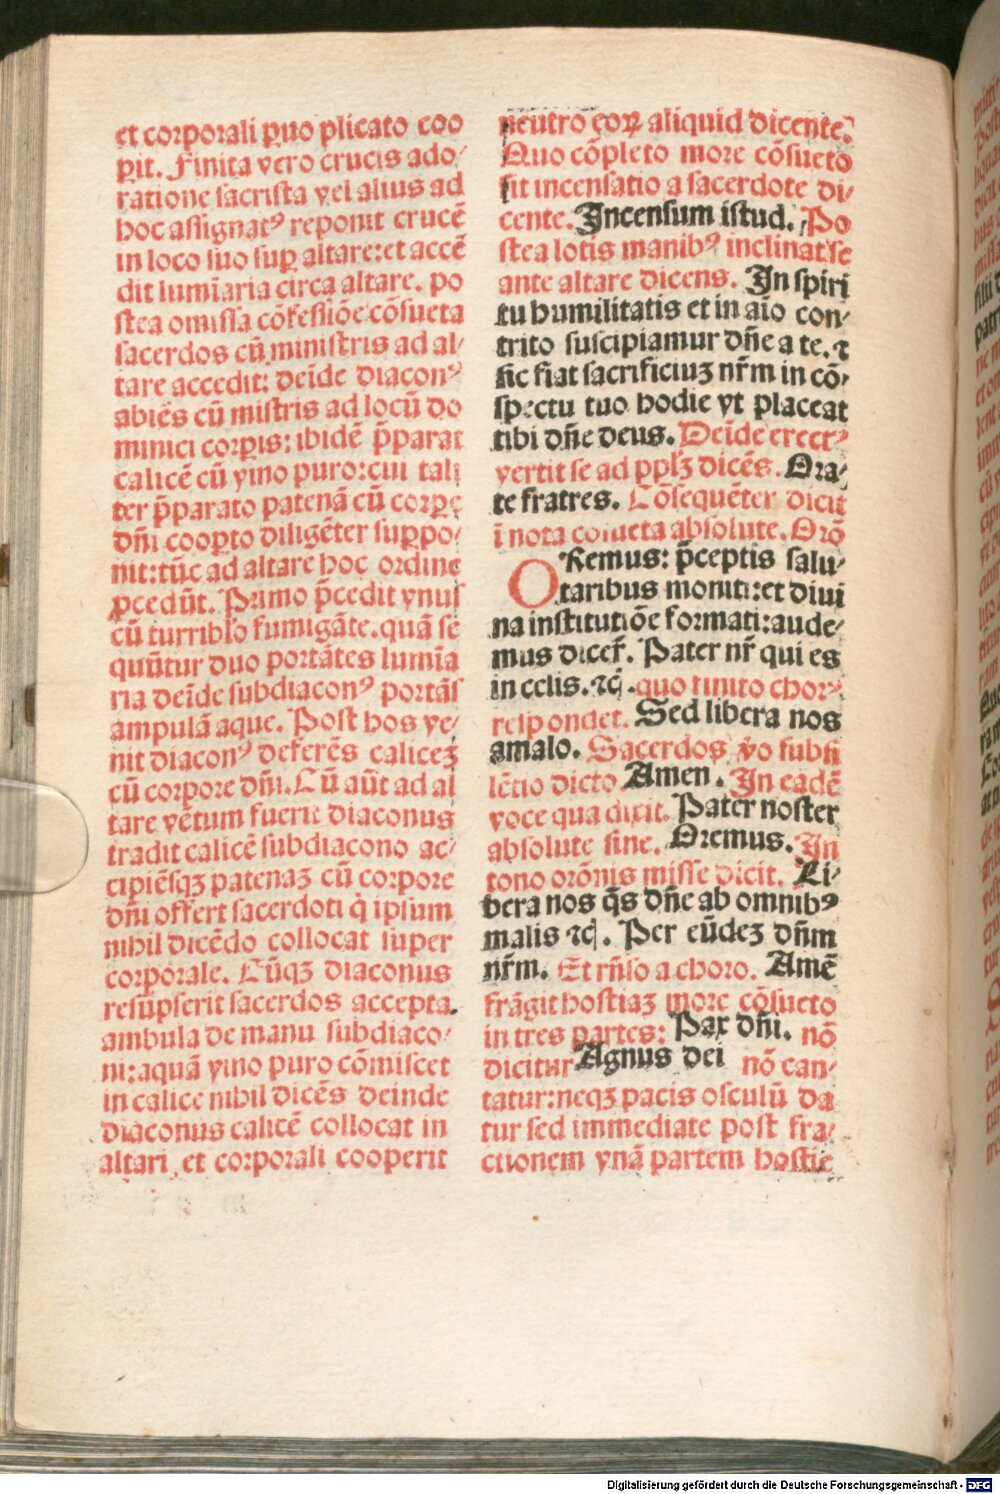 et corporali ꝑuo plicato coo
ꝑit. Finita vero crucis ado⸗
ratione sacrista vel alius ad
hoc assignatꝰ reponit crucē
in loco suo suꝑ altare: et accē
dit lumīaria circa altare. po
stea omissa cōfessiōe cōsueta
sacerdos cū ministris ad al⸗
tare accedit: deīde diaconꝰ
abiēs cū mīstris ad locū do
minici corꝑis: ibidē p̄parat
calicē cū vino puro: cui tali
ter p̄parato patenā cū corꝑe
dn̄i cooꝑto diligēter suꝑpo⸗
nit: tūc ad altare hoc ordine
ꝓcedūt. Primo p̄cedit vnus
cū turriblo fumigāte. quā se
quūtur duo portātes lumīa
ria deīde subdiaconꝰ portās
ampulā aque. Post hos ve⸗
nit diaconꝰ deferēs calicez
cū corpore dn̄i. Cū aūt ad al
tare vētum fuerit diaconus
tradit calicē subdiacono ac⸗
cipiēsqꝫ patenaꝫ cū corpore
dn̄i offert sacerdoti q̇ ipsum
nihil dicēdo collocat super
corporale. Cūqꝫ diaconus
resūpserit sacerdos accepta
ambula de manu subdiaco⸗
ni: aquā vino puro cōmiscet
in calice nihil dicēs deinde
diaconus calicē collocat in
altari et corporali cooperit
neutro eoꝝ aliquid dicente.
Quo cōpleto more cōsueto
fit incensatio a sacerdote di⸗
cente. Incensum istud. Po
stea lotis manibꝰ inclinat se
ante altare dicens. In spiri
tu humilitatis et in aīo con⸗
trito suscipiamur dn̄e a te. ⁊
sic fiat sacrificiuꝫ nr̄m in cō⸗
spectu tuo hodie vt placeat
tibi dn̄e deus. Deīde erectꝰ
vertit se ad pplꝫ dicēs. Ora⸗
te fratres. Cōsequēter dicit
ī nota cōsueta absolute. Orō
ORemus: p̄ceptis salu⸗
taribus moniti: et divi
na institutiōe formati: aude⸗
mus dicer̄. Pater nr̄ qui es
in celis. ⁊c̄. quo finito chorꝰ
respondet. Sed libera nos
amalo. Sacerdos v̊o subsi
lētio dicto Amen. In eadē
voce qua dixit. Pater noster
absolute sine. Oremus. In
tono orōnis misse dicit. Li⸗
bera nos q̄s dn̄e ab omnibꝰ
malis ⁊c̄. Per eūdeꝫ dn̄m
nr̄m. Et rn̄so a choro. Amē
frāgit hostiaꝫ more cōsueto
in tres partes: Pax dn̄i. nō
dicitur Agnus dei nō can⸗
tatur: neqꝫ pacis osculū da
tur sed immediate post fra⸗
ctionem vnā partem hostie